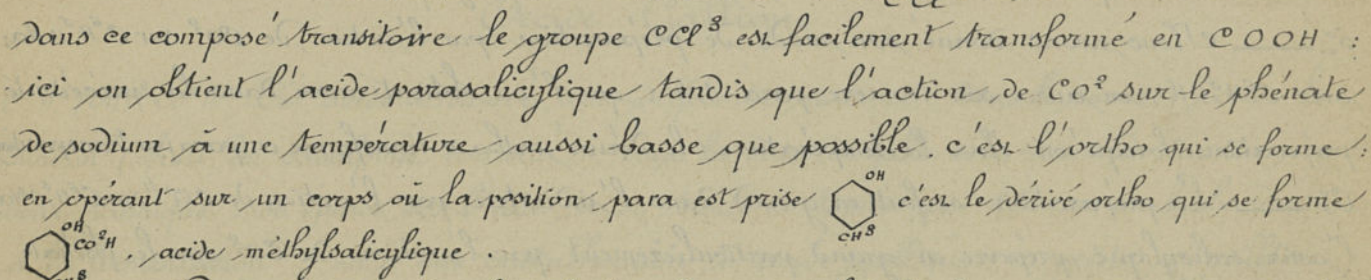 dans ce composé transitoire le groupe CCl³ est facilement transformé en COOH :
ici on obtient l'acide parasalicylique tandis que l'action de CO² sur le phénate
de sodium à une température aussi basse que possible, c'est l'ortho qui se forme :
en opérant sur un corps où la position para est prise OH CH³ c'est le dérivé ortho qui se forme
OH CO²H CH³ , acide méthylsalicylique .